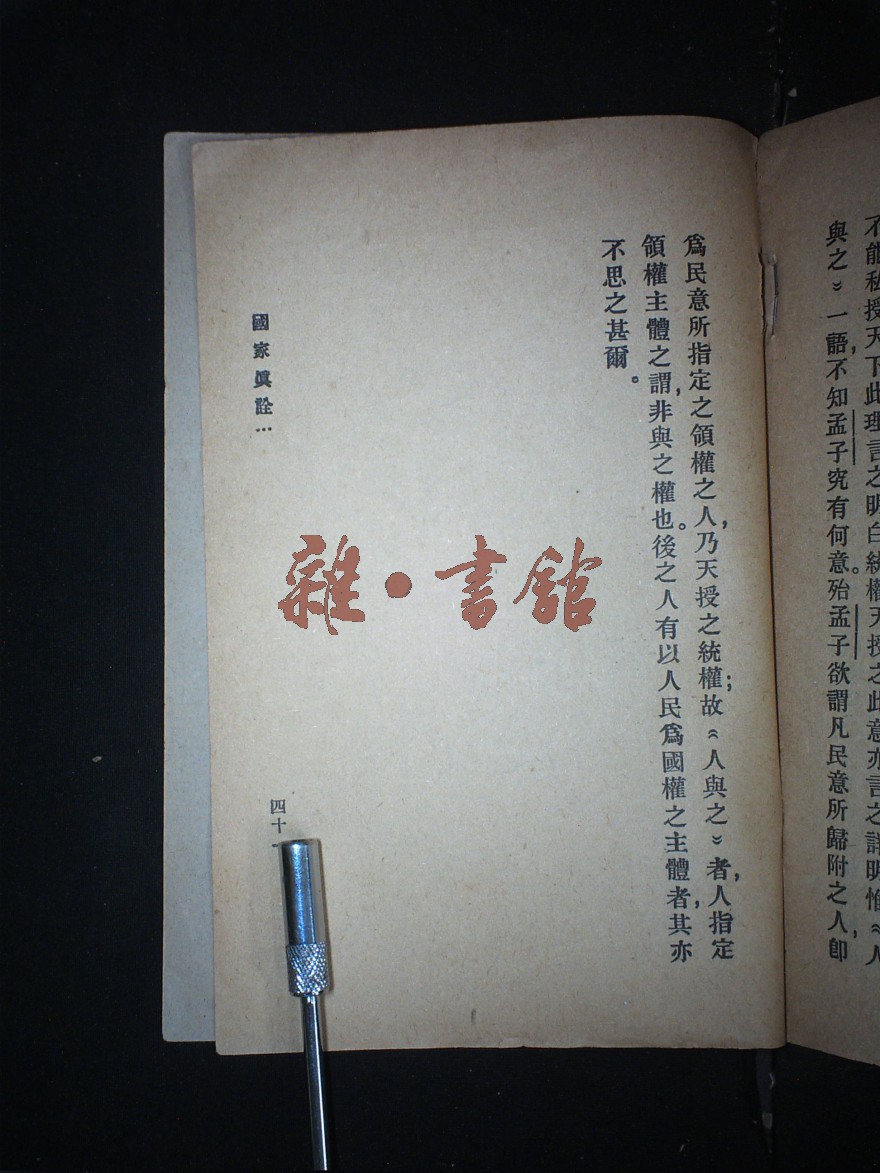 不能私授天下此理言之明白統權天授之此意亦言之詳明惟《人
與之》一語，不知孟子究有何意。殆孟子欲謂凡民意所歸附之人，卽
爲民意所指定之領權之人，乃天授之統權；故《人與之》者，人指定
領權主體之謂，非與之權也。後之人有以人民爲國權之主體者，其亦
不思之甚爾。
國家眞詮…
四十
雜·書館